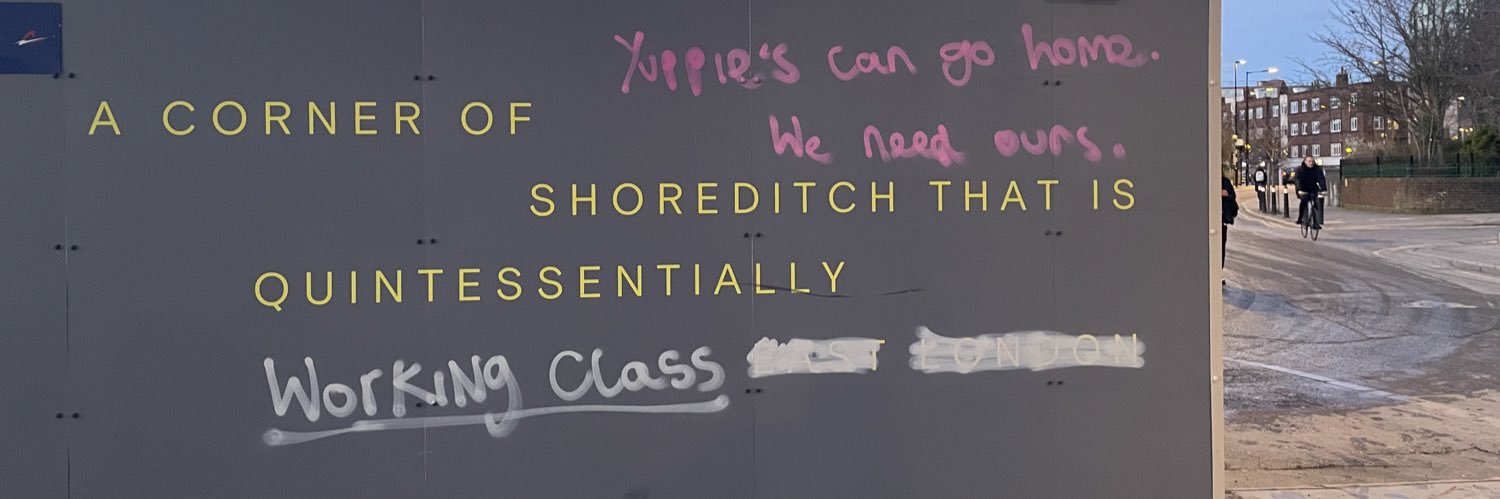 Yuppie's can go home.
We need ours.
A CORNER OF
SHOREDITCH THAT IS
QUINTESSENTIALLY
WORKING Class EAST LONDON